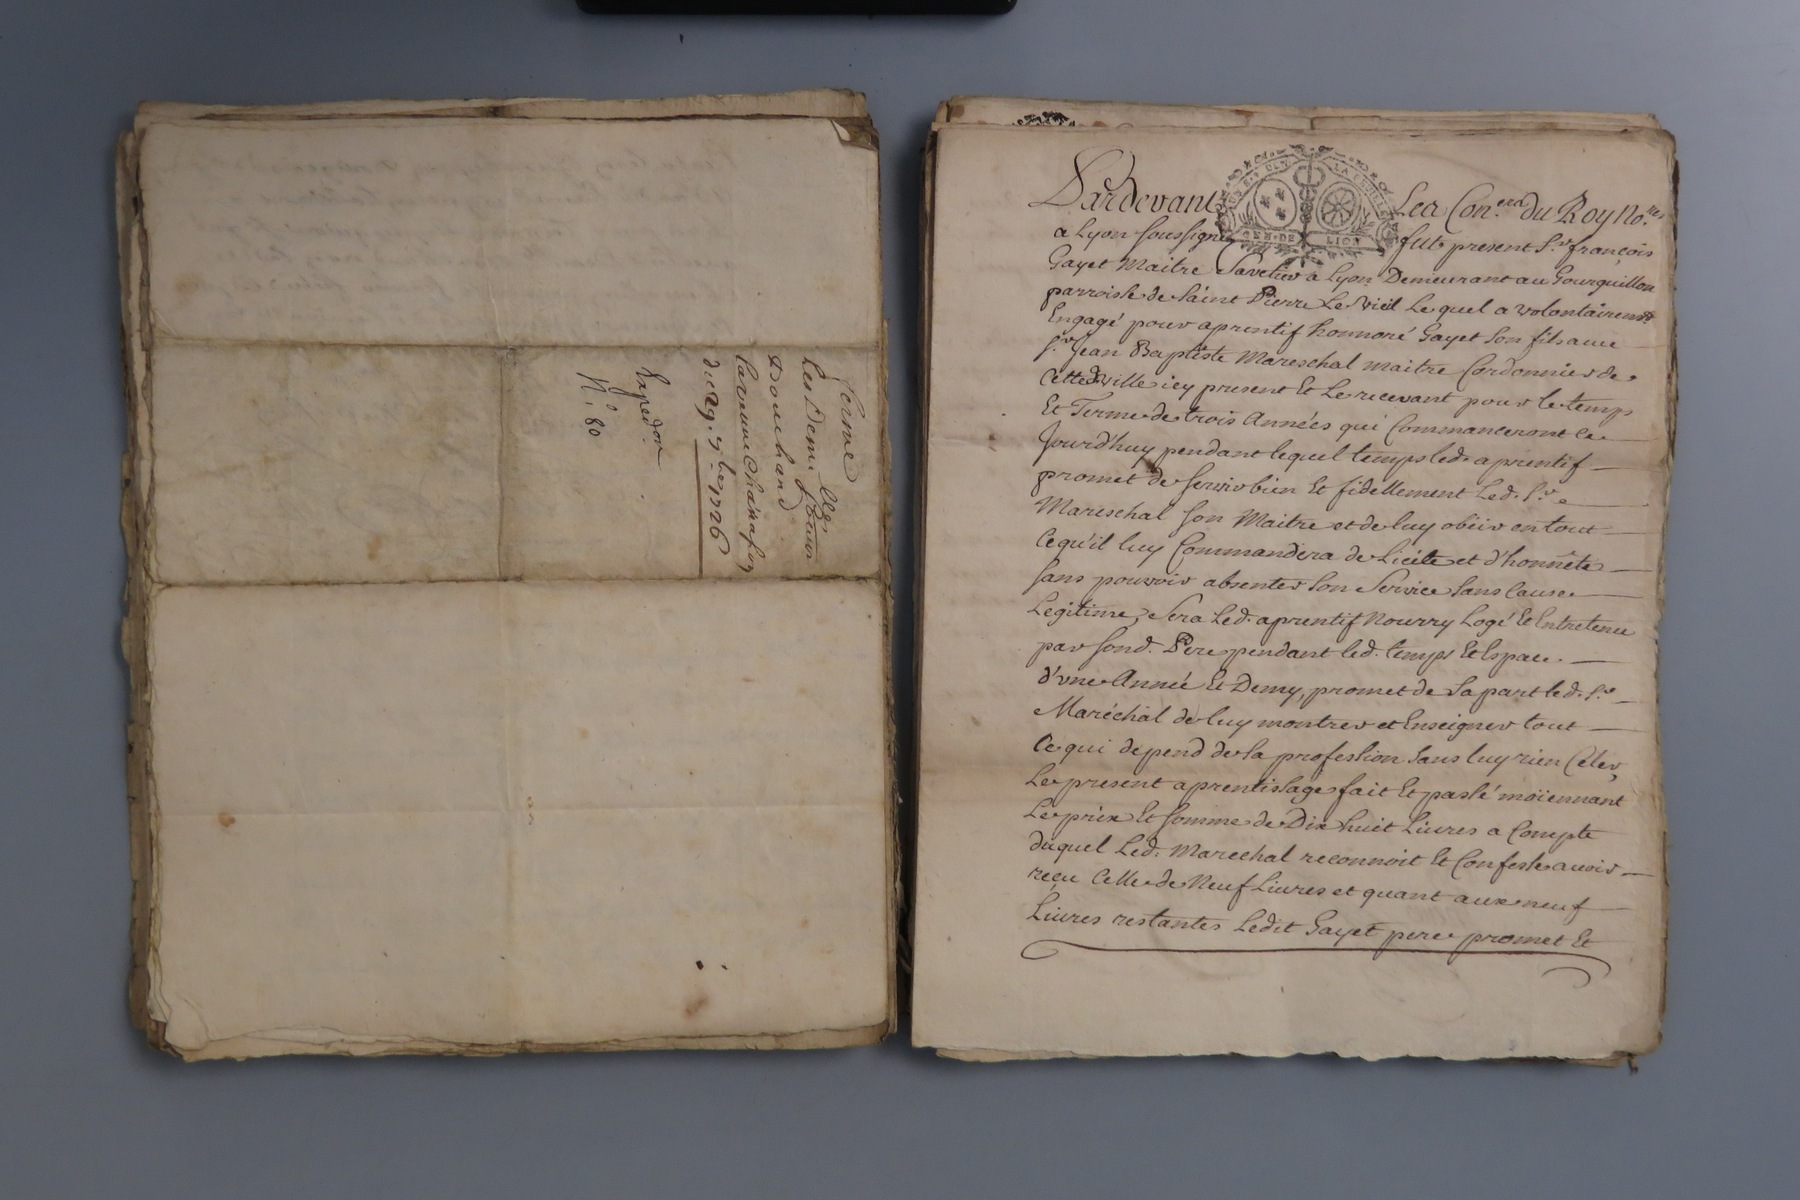 Ferme
Les Dem.lles
Bouchard
La veuve
du 29. 7.bre 1726
Exped.on
N.o 80
Pardevant Les Con.ers du Roy No.res
a Lyon soussignes fut present S.r françois
Gayet Maitre Savetier a Lyon Demeurant au Gourguillon
parroisse de Saint Pierre Le Vieil Lequel a volontairem.t
Engagé pour aprentif honnoré Gayet son fils avec
s.r Jean Baptiste Mareschal maitre Cordonnier de
Cetted. ville icy present Et Le recevant pour le temps
Et Terme de trois Années qui Commanceront ce
Jourd'huy pendant lequel temps led. aprentif
promet de servir bien Et fidellement Led. S.r
Mareschal son Maitre et de luy obéir en tout
Ce qu'il luy Commandera de Licite et d'honnête
sans pouvoir absenter son Service sans Cause
Legitime, Sera Led. aprentif Nourry Logé Et Entretenu
par sond. Pere pendant led. temps Et Espace
d'vne Année Et Demy, promet de sa part led. S.r
Maréchal de luy montrer et Enseigner tout
Ce qui depend de sa profession sans luy rien Celer,
Le present aprentissage fait Et passé moïennant
Le prix Et somme de Dix huit Livres a Compte
duquel Led. Marechal reconnoit Et Confesse avoir
reçu Celle de Neuf Livres et quant aux neuf
Livres restantes Ledit Gayet pere promet Et